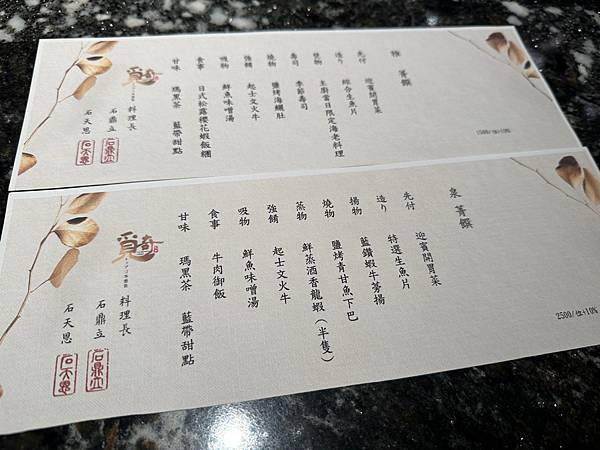 菁饌
先付 迎賓開胃菜
造り 綜合生魚片
主廚當日限定海老料理
壽司 季節壽司
燒物 鹽烤海鱺肚
強餚 起士文火牛
吸物 鮮魚味噌湯
食事 日式松露櫻花蝦飯糰
甘味 瑪黑茶 藍帶甜點
1500/位+10%
覓奇
料理長
石鼎立
石天恩
泉菁饌
先付 迎賓開胃菜
造り 特選生魚片
揚物 藍鑽蝦牛蒡揚
燒物 鹽烤青甘魚下巴
蒸物 鮮蒸酒香龍蝦(半隻)
強餚 起士文火牛
吸物 鮮魚味噌湯
食事 牛肉御飯
甘味 瑪黑茶 藍帶甜點
2500/位+10%
覓奇
料理長
石鼎立
石天恩